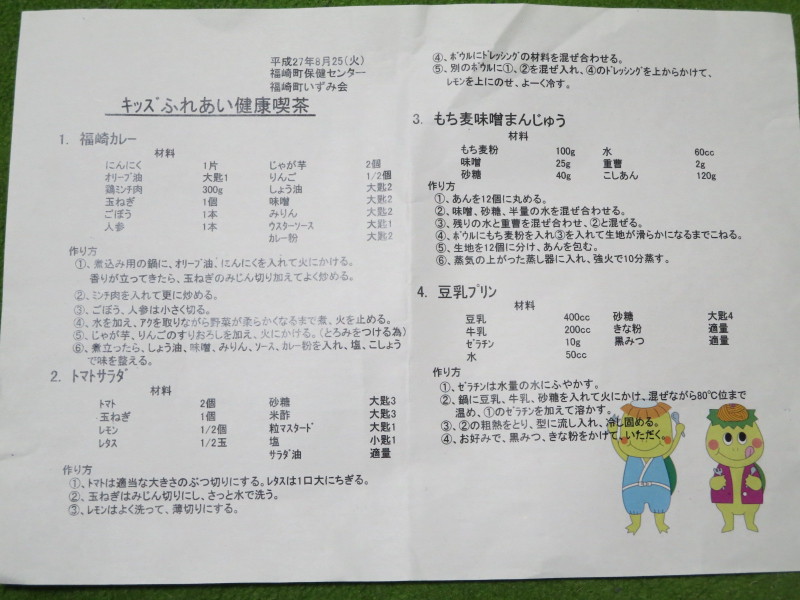 平成27年8月25(火)
福崎町保健センター
福崎町いずみ会
ｷｯｽﾞふれあい健康喫茶
1. 福崎カレー
材料
にんにく 1片 じゃが芋 2個
ｵﾘｰﾌﾞ油 大匙1 りんご 1/2個
鶏ﾐﾝﾁ肉 300g しょう油 大匙2
玉ねぎ 1個 味噌 大匙2
ごぼう 1本 みりん 大匙2
人参 1本 ｳｽﾀｰｿｰｽ 大匙1
カレー粉 大匙2
作り方
①、煮込み用の鍋に、ｵﾘｰﾌﾞ油、にんにくを入れて火にかける。
香りが立ってきたら、玉ねぎのみじん切り加えてよく炒める。
②、ﾐﾝﾁ肉を入れて更に炒める。
③、ごぼう、人参は小さく切る。
④、水を加え、ｱｸを取りながら野菜が柔らかくなるまで煮、火を止める。
⑤、じゃが芋、りんごのすりおろしを加え、火にかける。(とろみをつける為)
⑥、煮立ったら、しょう油、味噌、みりん、ｿｰｽ、カレー粉を入れ、塩、こしょう
で味を整える。
2. ﾄﾏﾄｻﾗﾀﾞ
材料
ﾄﾏﾄ 2個 砂糖 大匙3
玉ねぎ 1個 米酢 大匙3
レモン 1/2個 粒ﾏｽﾀｰﾄﾞ 大匙1
ﾚﾀｽ 1/2玉 塩 小匙1
ｻﾗﾀﾞ油 適量
作り方
①、ﾄﾏﾄは適当な大きさのぶつ切りにする。ﾚﾀｽは1口大にちぎる。
②、玉ねぎはみじん切りにし、さっと水で洗う。
③、ﾚﾓﾝはよく洗って、薄切りにする。
④、ﾎﾞｳﾙにﾄﾞﾚｯｼﾝｸﾞの材料を混ぜ合わせる。
⑤、別のﾎﾞｳﾙに①、②を混ぜ入れ、④のﾄﾞﾚｯｼﾝｸﾞを上からかけて、
ﾚﾓﾝを上にのせ、よーく冷す。
3. もち麦味噌まんじゅう
材料
もち麦粉 100g 水 60cc
味噌 25g 重曹 2g
砂糖 40g こしあん 120g
作り方
①、あんを12個に丸める。
②、味噌、砂糖、半量の水を混ぜ合わせる。
③、残りの水と重曹を混ぜ合わせ、②と混ぜる。
④、ﾎﾞｳﾙにもち麦粉を入れ③を入れて生地が滑らかになるまでこねる。
⑤、生地を12個に分け、あんを包む。
⑥、蒸気の上がった蒸し器に入れ、強火で10分蒸す。
4. 豆乳ﾌﾟﾘﾝ
材料
豆乳 400cc 砂糖 大匙4
牛乳 200cc きな粉 適量
ｾﾞﾗﾁﾝ 10g 黒みつ 適量
水 50cc
作り方
①、ｾﾞﾗﾁﾝは水量の水にふやかす。
②、鍋に豆乳、牛乳、砂糖を入れて火にかけ、混ぜながら80℃位まで
温め、①のｾﾞﾗﾁﾝを加えて溶かす。
③、②の粗熱をとり、型に流し入れ、冷し固める。
④、お好みで、黒みつ、きな粉をかけて、いただく。